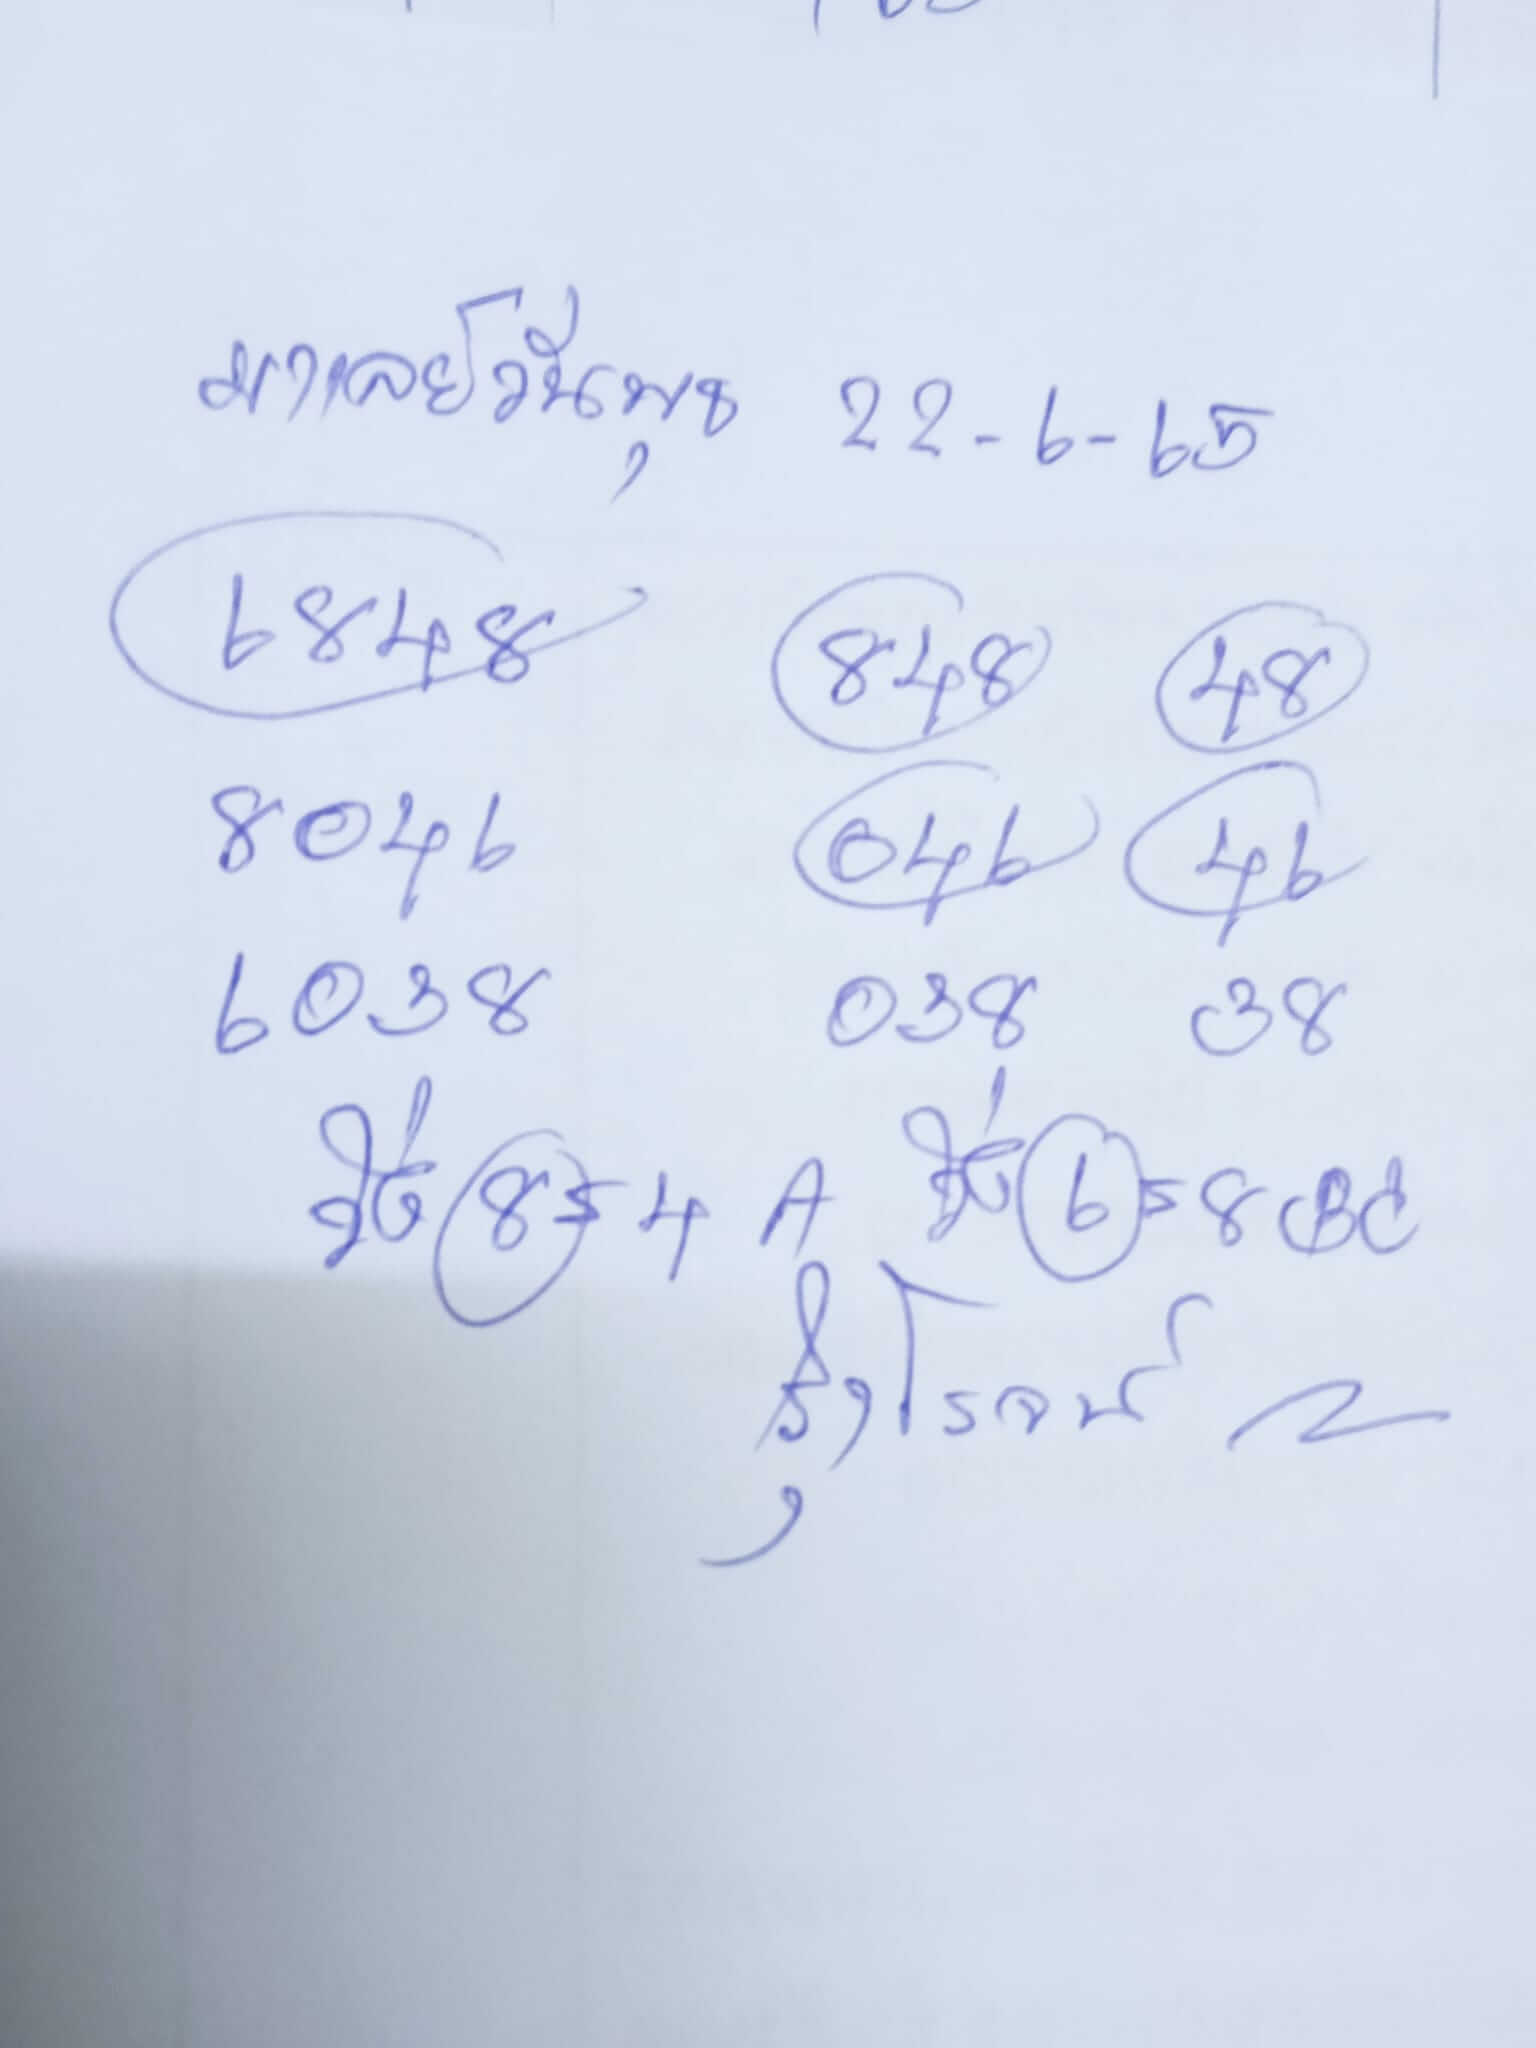 มาเลย์วันพุธ 22-6-65
6848 848 48
8046 046 46
6038 038 38
วิ่ง 8 = 4 A วิ่ง 6 = 8 BC